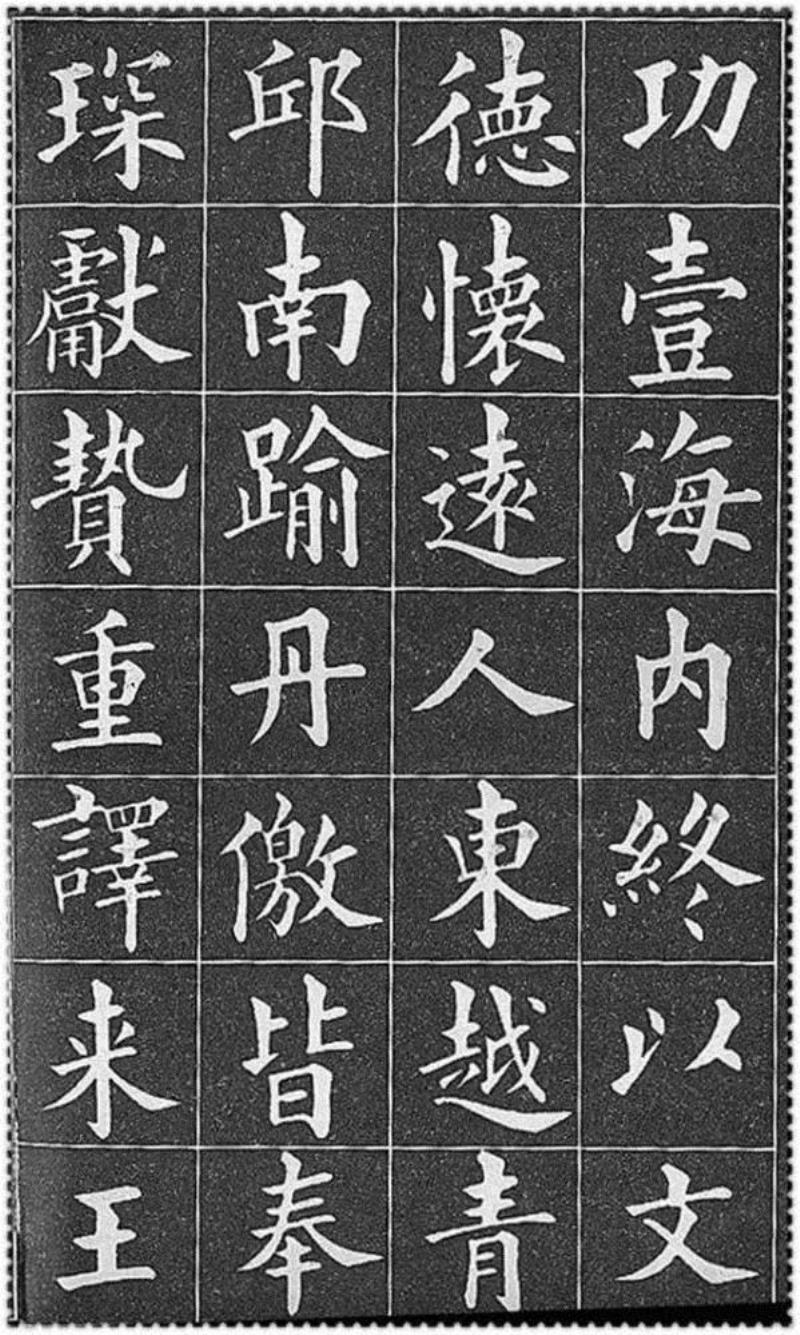 功壹海内終以文
德懷遠人東越青
邱南踰丹儌皆奉
琛獻贄重譯来王